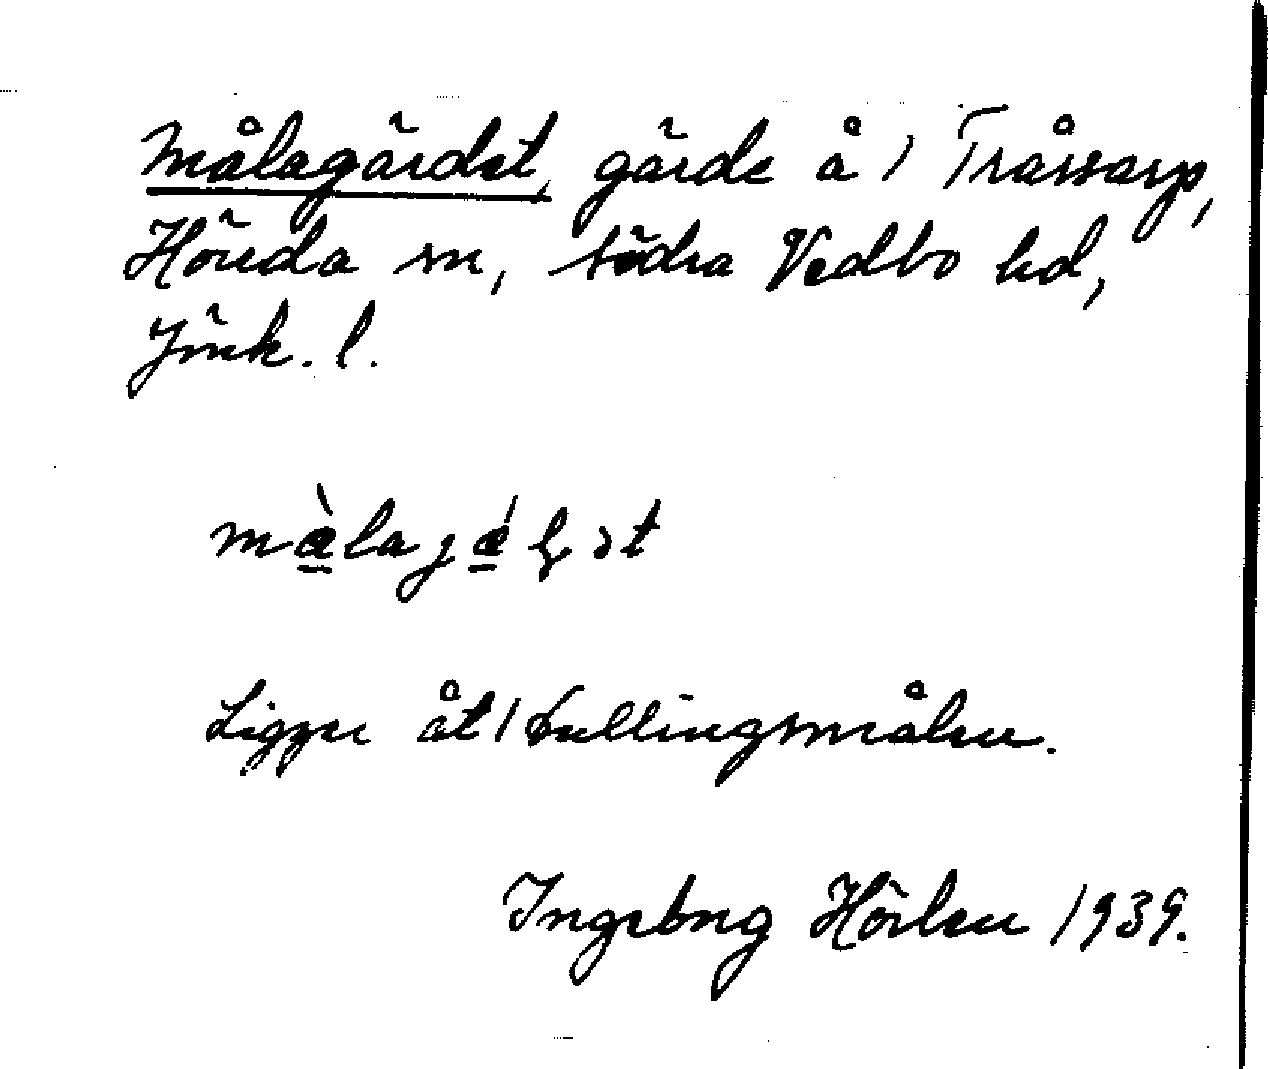 Målagärdet, gärde å / Tråssarp,
Höreda sn, Södra Vedbo hd,
Jönk. l.
Ligger åt / Lullingsmålen.
Ingeborg Hörlen 1939.